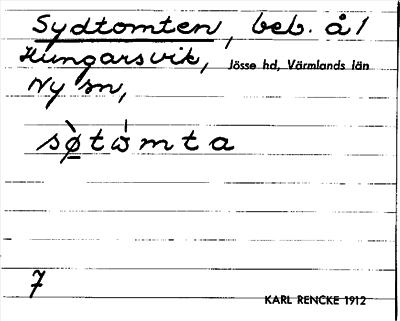 Sydtomten, beb. å 1
Hungarsvik, Jösse hd, Värmlands län
Ny sn,
sø̀tὼmta
7
KARL RENCKE 1912